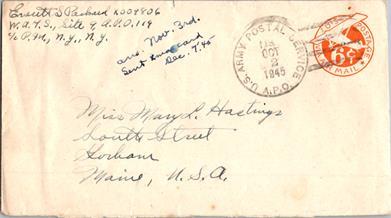 Everett S Packard K004906
W.A.T.S., Site 4 A.P.O. 119
c/o P.M., N.Y., N.Y.
ans. Nov. 3rd.
Sent Xmas card
Dec. 7.45
U.S. ARMY POSTAL SERVICE
OCT
2
1945
A.P.O.
U.S. POSTAGE
6¢
AIR MAIL
Miss Mary L. Hastings
South Street
Gorham
Maine, U.S.A.